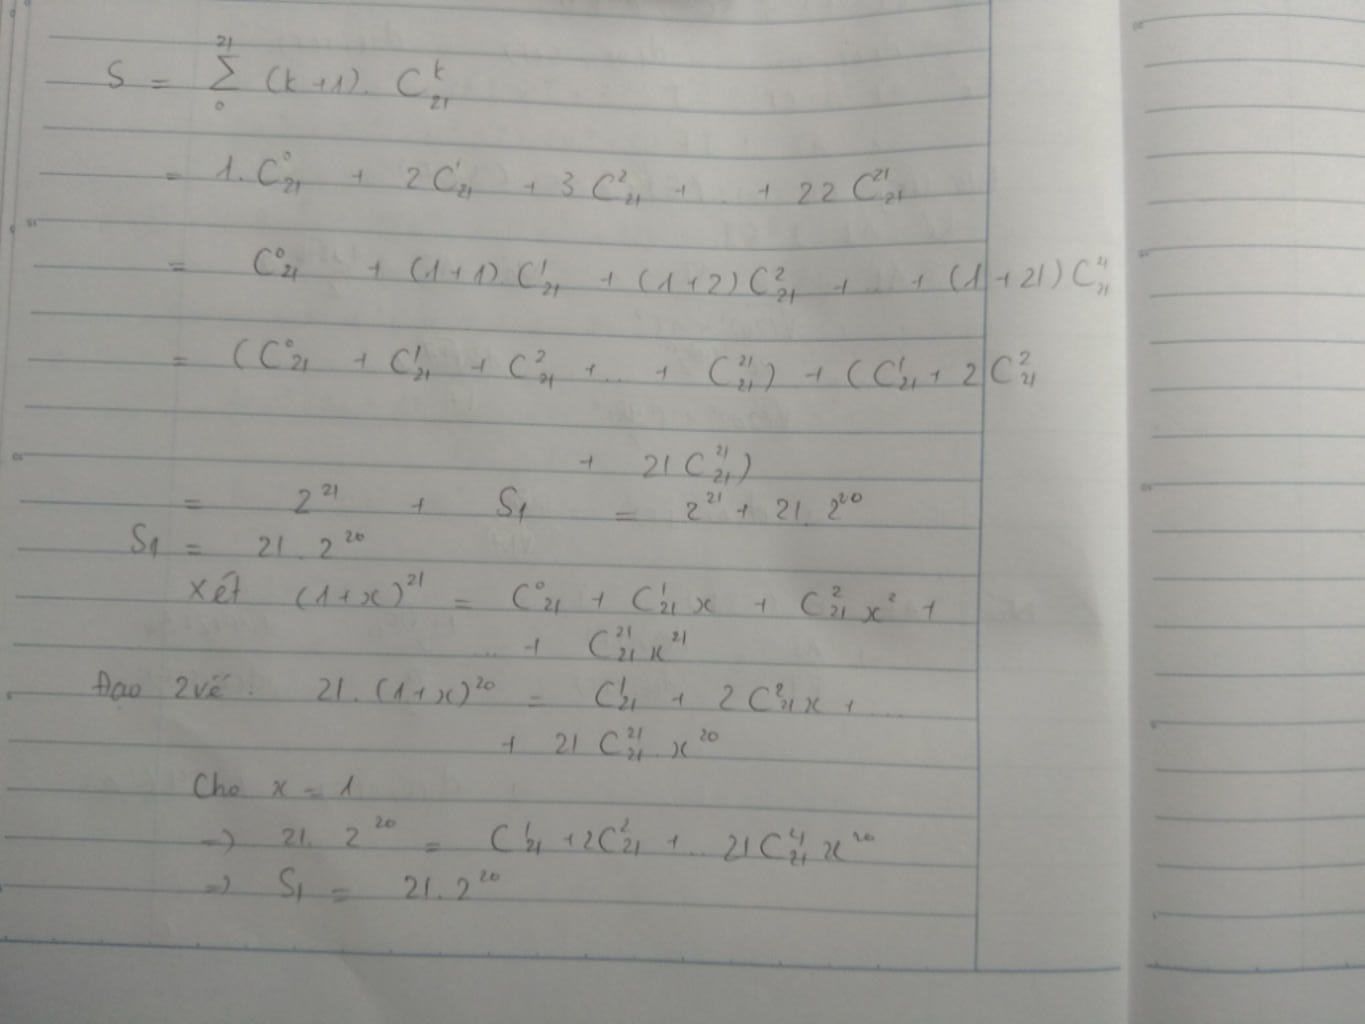 S = 21 Σ 0 (k+1). C_21^k
= 1. C_21^0 + 2 C_21^1 + 3 C_21^2 + .. + 22 C_21^21
= C_21^0 + (1+1) C_21^1 + (1+2) C_21^2 + .. + (1+21) C_21^21
= (C_21^0 + C_21^1 + C_21^2 + .. + C_21^21) + (C_21^1 + 2 C_21^2
+ 21 C_21^21)
= 2^21 + S_1 = 2^21 + 21. 2^20
S_1 = 21. 2^20
Xét (1+x)^21 = C_21^0 + C_21^1 x + C_21^2 x^2 +
... + C_21^21 x^21
Đạo 2 vế : 21. (1+x)^20 = C_21^1 + 2 C_21^2 x + ...
+ 21 C_21^21 x^20
Cho x = 1
=> 21. 2^20 = C_21^1 + 2C_21^2 + .. 21 C_21^21 x^20
=> S_1 = 21. 2^20